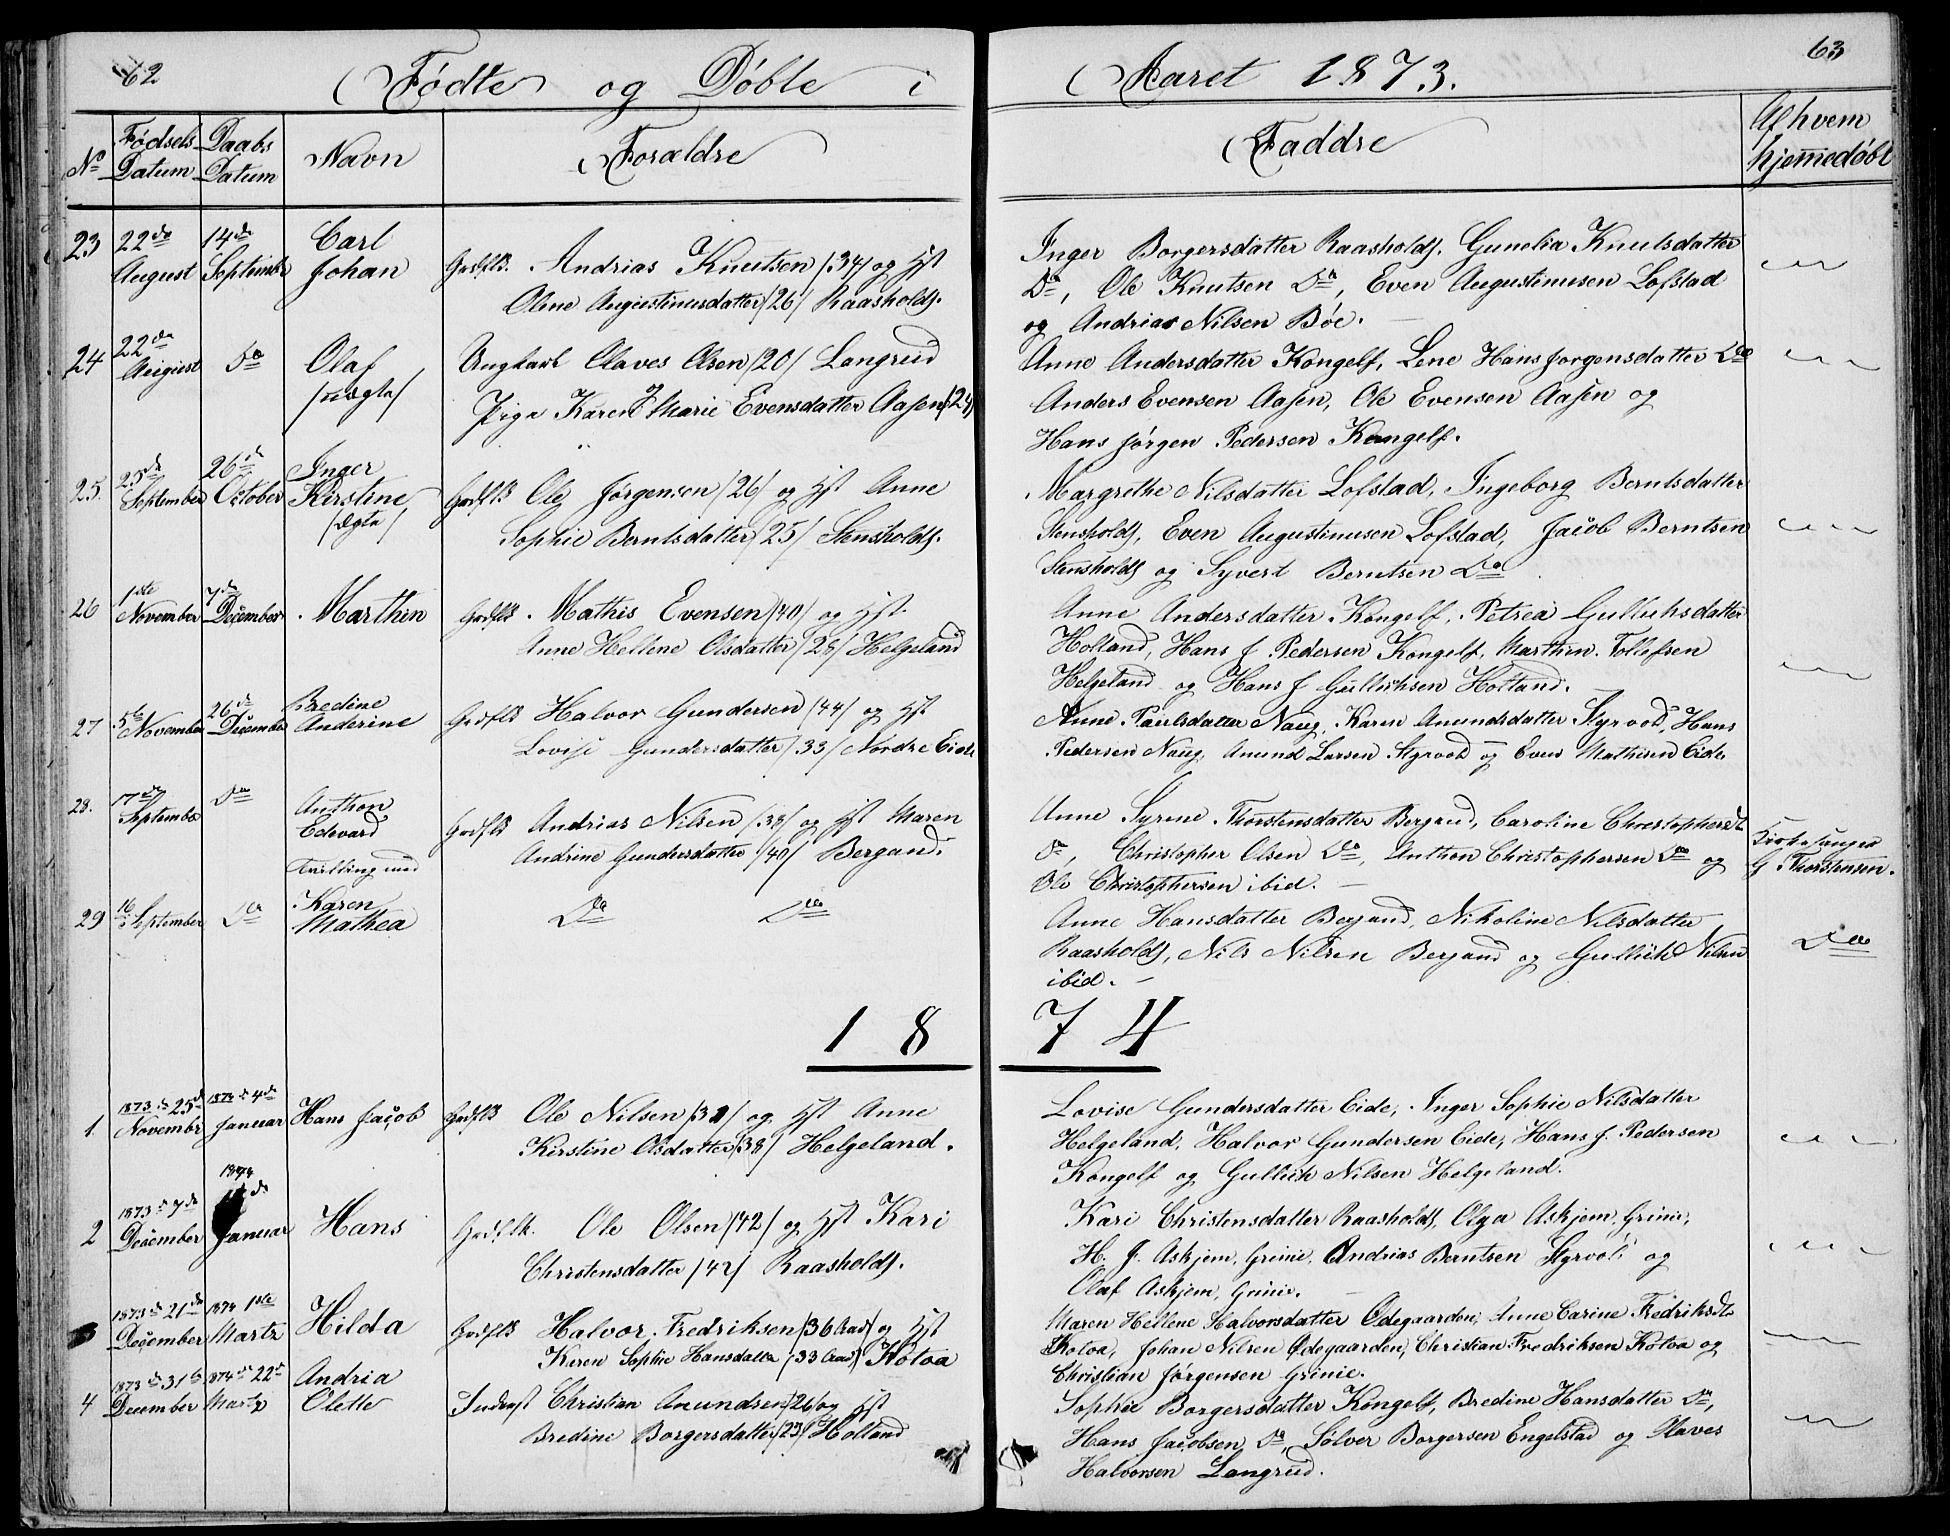 62
Fødte og Døbte i
Aaret 1873.
63
No
Fødsels Datum
Daabs Datum
Navn
Forældre
Faddre
Af hvem hjemedøbt
23
22de August
14de September
Carl Johan
Gadflk. Andrias Knutsen /34/ og Hst
Oline Augustinusdatter /26/ Raasholdf.
Inger Borgersdatter Raasholdf. Gunelia Knutsdatter
Do, Ole Knutsen Do, Even Augustinusen Lofstad
og Andrias Nilsen Böe.
24
22de August
Do
Olaf /uægte/
Ungkarl Olaves Olsen /20/ Langrud
Pige Karen Marie Evensdatter Aasen /24/
Anne Andersdatter Kongelf, Lene Hansjorgensdatter Do
Anders Evensen Aasen, Ole Evensen Aasen og
Hans Jörgen Pedersen Kongelf.
25.
25de September
26de October
Inger Kirstine /ægte/
Gadflk Ole Jørgensen /26/ og Hst Anne
Sophie Berntsdatter /25/ Stensholdf.
Margrethe Nilsdatter Lofstad, Ingeborg Berntsdatter
Stensholdf, Even Augustinusen Lofstad, Jacob Berntsen
Stensholdf og Syvert Berntsen Do
26
1ste November
7de December
Marthin
Gadflk. Mathis Evensen /40/ og Hst.
Anne Hellene Olsdatter /28/ Helgeland
Anne Andersdatter Kongelf, Petrea Gulliksdatter
Holland, Hans J. Pedersen Kongelf, Marthin Tollefsen
Helgeland og Hans J Gulliksen Holland.
27
5te November
26de December
Bredine Anderine
Gadflk Halvor Gundersen /44/ og Hst
Lovise Gundersdatter /33/ Nordre Eide
Anne Paulsdatter Naug, Karen Amundsdatter Styrvold, Hans
Pedersen Naug, Amund Larsen Styrvold og Even Mathisen Eide
28.
17de September
Do
Anthon Edvard
Tvilling med
Gadflk Andrias Nilsen /38/ og Hst Maren
Andrine Gundersdatter /40/ Bergand.
Anne Syrene Thorstensdatter Bergand, Caroline Christophersdt
Do, Christopher Olsen Do, Anthon Christophersen Do og
Ole Christophersen ibid.
Kirkesanger
G Thorstensen.
29
16 September
Do
Karen Mathea
Do Do
Anne Hansdatter Bergand, Nikoline Nilsdatter
Raasholdf, Nils Nilsen Bergand og Gullik Nilsen
ibid.
Do
1874
1.
1873 25de Novembr
1874 4de Januar
Hans Jacob
Gadflk Ole Nilsen /31/ og Hst Anne
Kirstine Olsdatter /38/ Helgeland.
Lovise Gundersdatter Eide, Inger Sophie Nilsdatter
Helgeland, Halvor Gundersen Eide, Hans J. Pedersen
Kongelf og Gullik Nilsen Helgeland.
2
1873 7de December
1874 Januar
Hans
Gadflk. Ole Olsen /42/ og Hst Kari
Christensdatter /42/ Raasholdf.
Kari Christensdatter Raasholdf, Olga Askjem, Grinie,
H. J. Askjem, Grinie, Andrias Berntsen Styrvold og
Olaf Askjem, Grinie.
3
1873 21de December
1874 1ste Marts
Hilda
Gadflk Halvor Fredriksen /36 Aar/ og Hst
Karen Sophie Hansdatter /33 Aar/ Kotoa
Maren Hellene Halvorsdatter Ødegaarden, Anne Carine Fredriksdt
Kotoa, Johan Nilsen Ødegaarden, Christian Fredriksen Kotoa og
Christian Jørgensen Grinie.
4
1873 31te December
1874 22de Marts
Andria Olette
Inderst Christian Amundsen /26/ og Hst
Bredine Borgersdatter /23/ Holland
Sophie Borgersdatter Kongelf, Bredine Hansdatter Do,
Hans Jacobsen Do, Sølver Borgersen Engelstad og Olaves
Halvorsen Langrud.